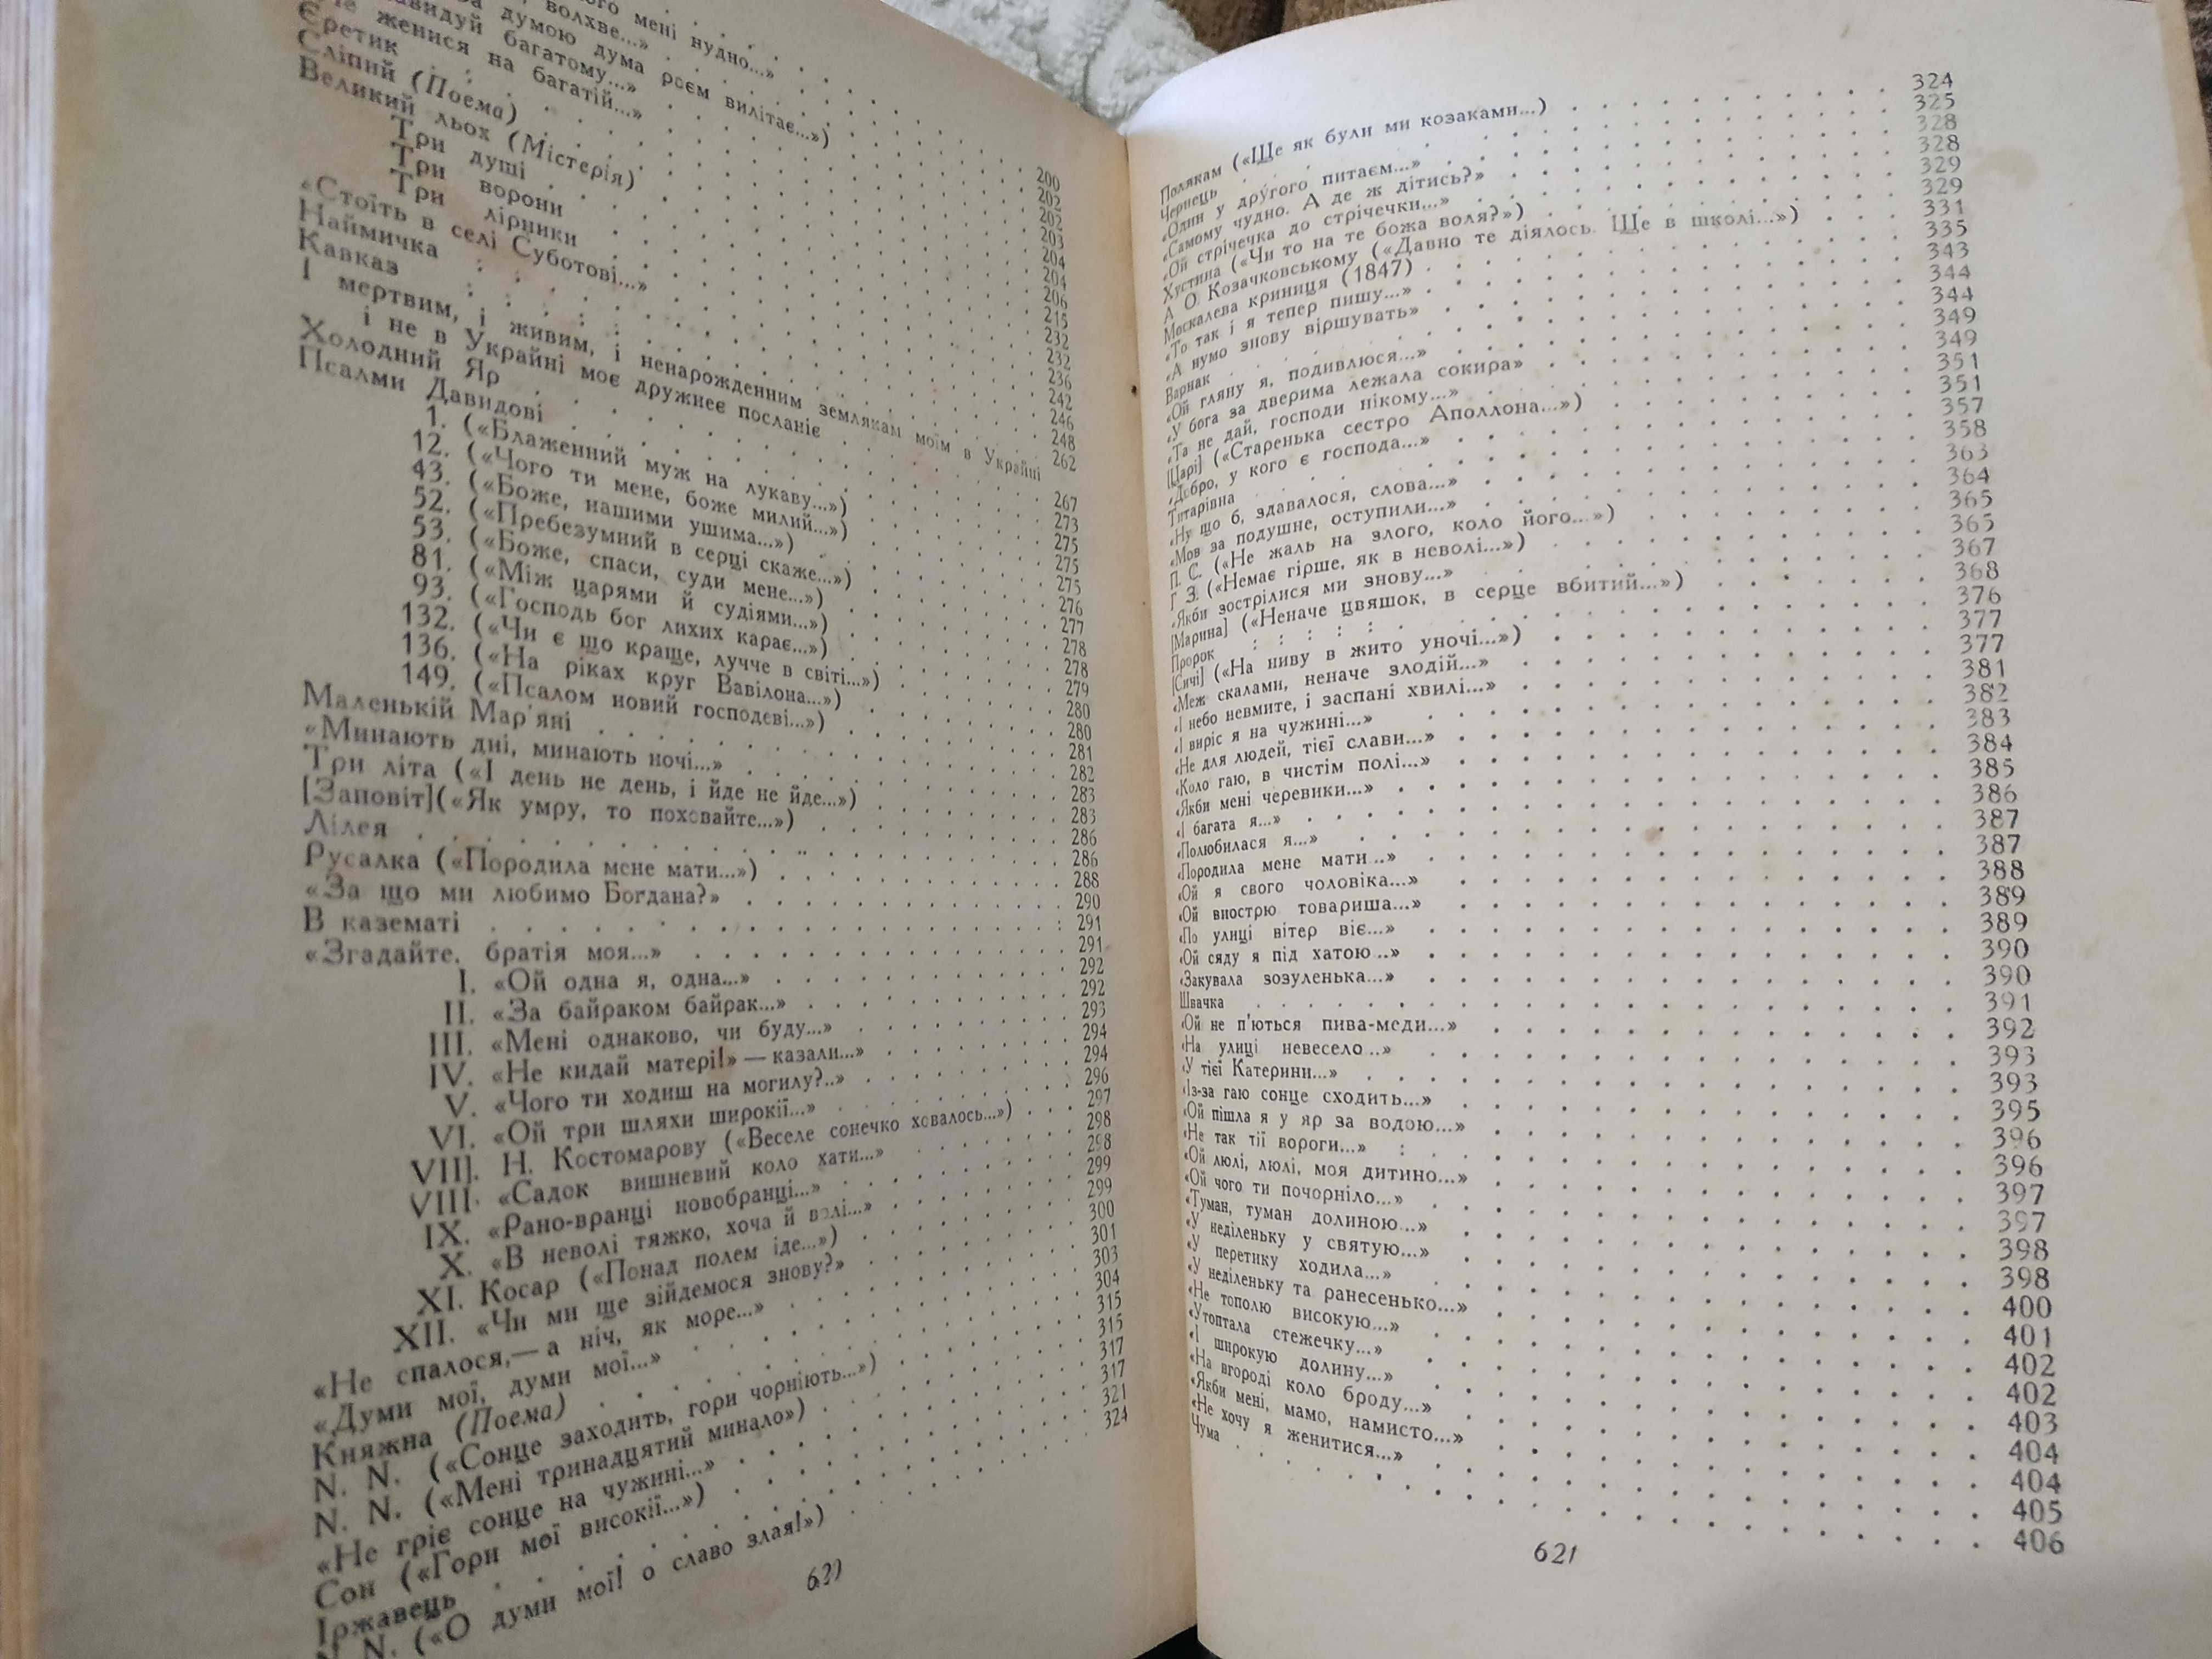 мені нудно...»
волхве...»
думою дума роєм вилітає...») 200
багатому...» 202
женися на багатій...» 202
Єретик 203
Сліпий (Поема) 204
Великий льох (Містерія) 204
Три душі 206
Три ворони 215
Три лірники 232
«Стоїть в селі Суботові...» 232
Наймичка 236
Кавказ 242
І мертвим, і живим, і ненарожденним землякам моїм в Украйні 246
і не в Украйні моє дружнєє посланіє 248
Холодний Яр 262
Псалми Давидові 267
1. («Блаженний муж на лукаву...») 273
12. («Чого ти мене, боже милий...») 275
43. («Боже, нашими ушима...») 275
52. («Пребезумний в серці скаже...») 275
53. («Боже, спаси, суди мене...») 276
81. («Між царями й судіями...») 277
93. («Господь бог лихих карає...») 278
132. («Чи є що краще, лучче в світі...») 278
136. («На ріках круг Вавілона...») 279
149. («Псалом новий господеві...») 280
Маленькій Мар'яні 280
«Минають дні, минають ночі...» 281
Три літа («І день не день, і йде не йде...») 282
[Заповіт] («Як умру, то поховайте...») 283
Лілея 283
Русалка («Породила мене мати...») 286
«За що ми любимо Богдана?» 286
В казематі 288
«Згадайте, братія моя...» 290
I. «Ой одна я, одна...» 291
II. «За байраком байрак...» 291
III. «Мені однаково, чи буду...» 292
IV. «Не кидай матері!» — казали...» 292
V. «Чого ти ходиш на могилу?..» 293
VI. «Ой три шляхи широкії...» 294
VII]. Н. Костомарову («Веселе сонечко ховалось...») 294
VIII. «Садок вишневий коло хати...» 296
IX. «Рано-вранці новобранці...» 297
X. «В неволі тяжко, хоча й волі...» 298
XI. Косар («Понад полем іде...») 298
XII. «Чи ми ще зійдемося знову?» 299
«Не спалося,— а ніч, як море...» 299
«Думи мої, думи мої...» 300
Княжна (Поема) 301
N. N. («Сонце заходить, гори чорніють...») 303
N. N. («Мені тринадцятий минало») 304
«Не гріє сонце на чужині...» 315
Сон («Гори мої високії...») 315
Іржавець 317
N. («О думи мої! о славо злая!») 317
321
324
620
Полякам («Ще як були ми козаками...») 324
Чернець 325
«Один у другого питаєм...» 328
«Самому чудно. А де ж дітись?» 328
«Ой стрічечка до стрічечки...» 329
Хустина («Чи то на те божа воля?») 329
А. О. Козачковському («Давно те діялось. Ще в школі...») 331
Москалева криниця (1847) 335
«То так і я тепер пишу...» 343
«А нумо знову віршувать» 344
Варнак 344
«Ой гляну я, подивлюся...» 349
«У бога за дверима лежала сокира» 349
«Та не дай, господи нікому...» 351
[Царі] («Старенька сестро Аполлона...») 351
«Добро, у кого є господа...» 357
Титарівна 358
«Ну що б, здавалося, слова...» 363
«Мов за подушне, оступили...» 364
П. С. («Не жаль на злого, коло його...») 365
Г. З. («Немає гірше, як в неволі...») 365
«Якби зострілися ми знову...» 367
[Марина] («Неначе цвяшок, в серце вбитий...») 368
Пророк 376
[Сичі] («На ниву в жито уночі...») 377
«Меж скалами, неначе злодій...» 377
«І небо невмите, і заспані хвилі...» 381
«І виріс я на чужині...» 382
«Не для людей, тієї слави...» 383
«Коло гаю, в чистім полі...» 384
«Якби мені черевики...» 385
«І багата я...» 386
«Полюбилася я...» 387
«Породила мене мати...» 387
«Ой я свого чоловіка...» 388
«Ой виострю товариша...» 389
«По улиці вітер віє...» 389
«Ой сяду я під хатою...» 390
«Закувала зозуленька...» 390
Швачка 391
«Ой не п'ються пива-меди...» 392
«На улиці невесело...» 393
«У тієї Катерини...» 393
«Із-за гаю сонце сходить...» 395
«Ой пішла я у яр за водою...» 396
«Не так тії вороги...» 396
«Ой люлі, люлі, моя дитино...» 397
«Ой чого ти почорніло...» 397
«Туман, туман долиною...» 398
«У неділеньку у святую...» 398
«У перетику ходила...» 400
«У неділеньку та ранесенько...» 401
«Не тополю високую...» 402
«Утоптала стежечку...» 402
«І широкую долину...» 403
«На вгороді коло броду...» 404
«Якби мені, мамо, намисто...» 404
«Не хочу я женитися...» 405
Чума 406
621